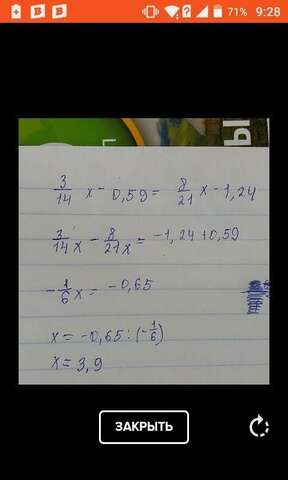 71% 9:28
3/14 x - 0,59 = 8/21 x - 1,24
3/14 x - 8/21 x = -1,24 + 0,59
- 1/6 x = -0,65
x = -0,65 : (- 1/6)
x = 3,9
ЗАКРЫТЬ